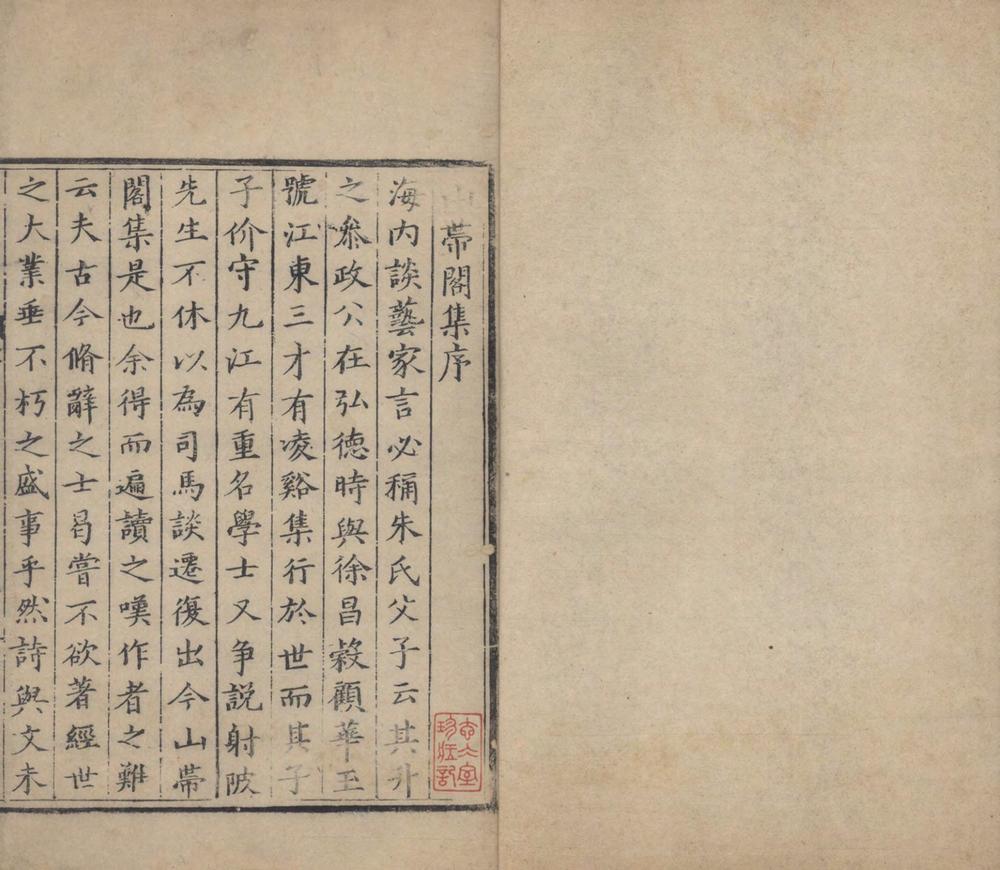 山帶閣集序
海内談藝家言必稱朱氏父子云其升
之叅政公在弘德時與徐昌穀顧華玉
號江東三才有凌谿集行於世而其子
子价守九江有重名學士又争説射陂
先生不休以為司馬談遷復出今山帶
閣集是也余得而遍讀之嘆作者之難
云夫古今脩辭之士曷嘗不欲著經世
之大業垂不朽之盛事乎然詩與文未